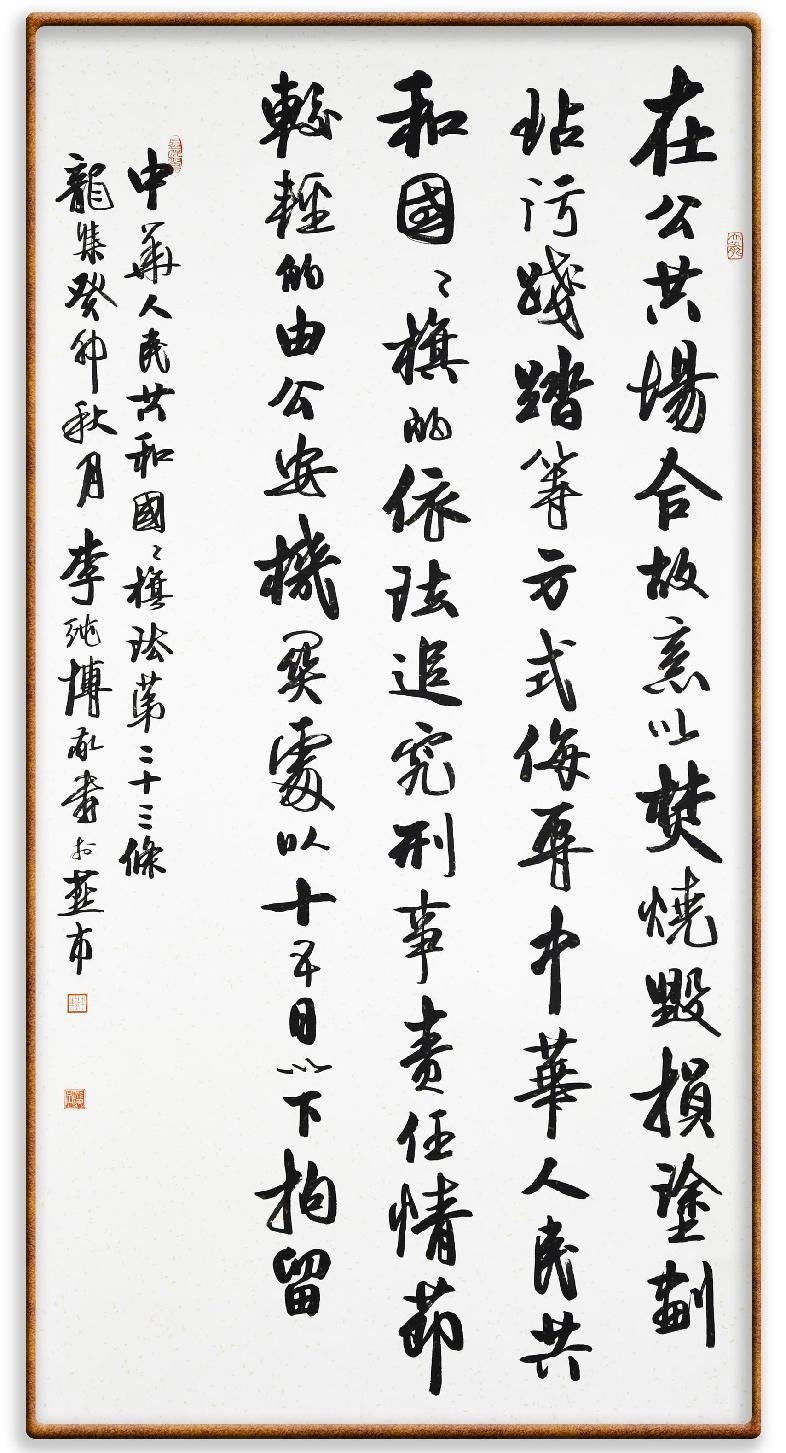 在公共場合故意以焚燒毀損塗劃
玷污踐踏等方式侮辱中華人民共
和國〻旗的依法追究刑事責任情節
較輕的由公安機關處以十五日以下拘留
中華人民共和國〻旗法第二十三條
龍集癸卯秋月李純博敬書於燕市